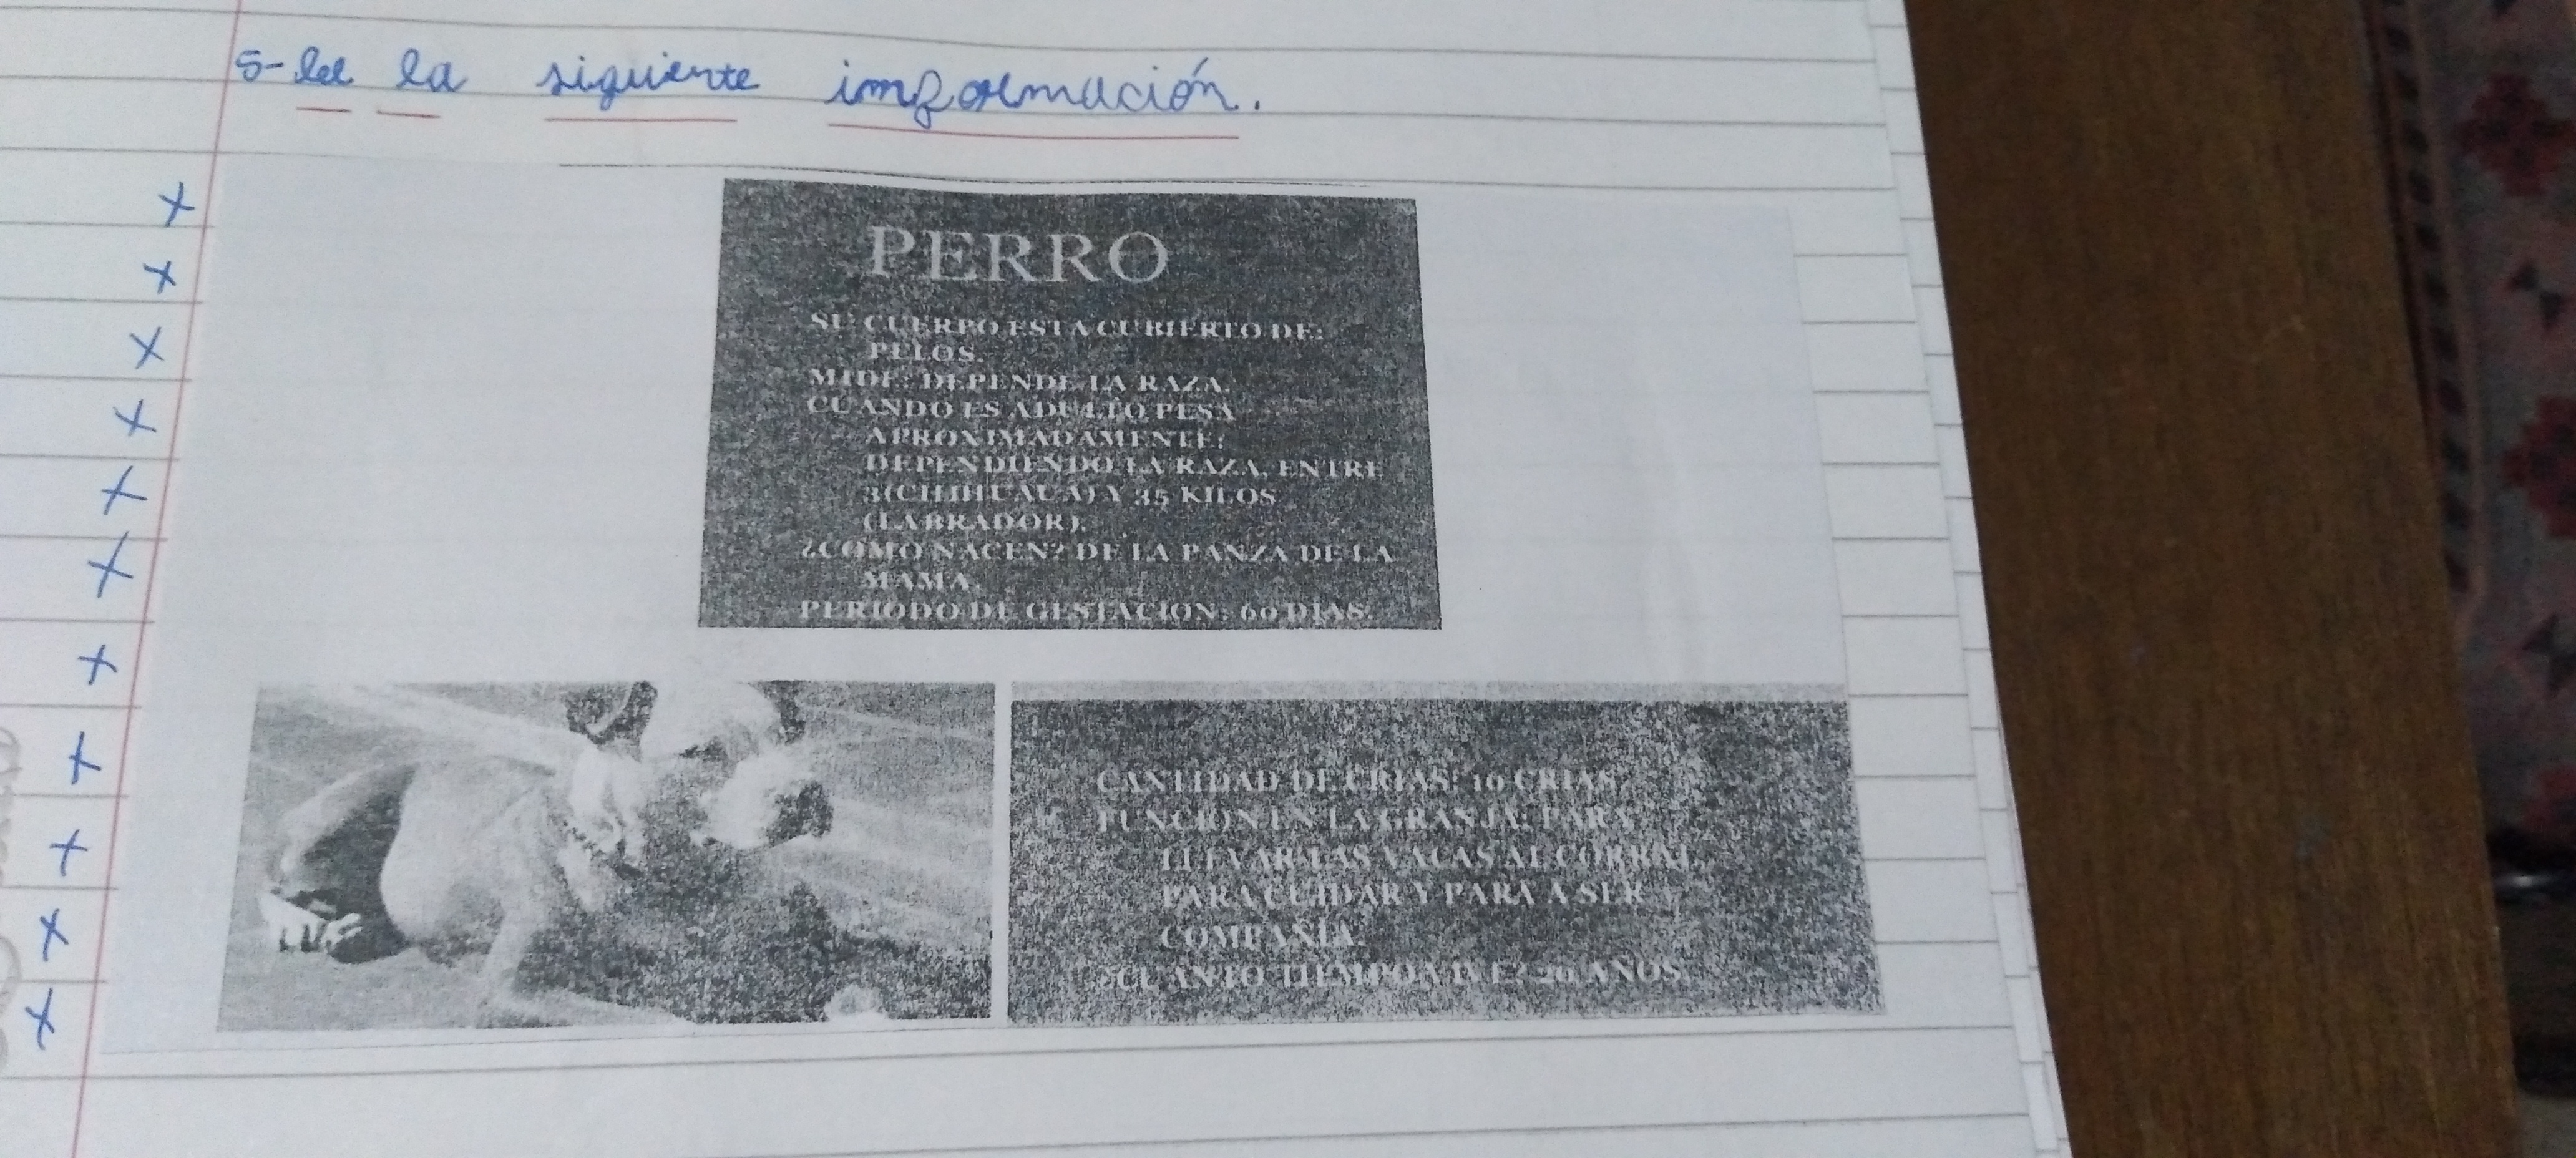 5- lee la siguiente información.
PERRO
SU CUERPO ESTA CUBIERTO DE:
PELOS.
MIDE: DEPENDE LA RAZA.
CUANDO ES ADULTO PESA
APROXIMADAMENTE:
DEPENDIENDO LA RAZA, ENTRE
3(CHIHUAUA) Y 35 KILOS
(LABRADOR).
¿COMO NACEN? DE LA PANZA DE LA
MAMA.
PERIODO DE GESTACION: 60 DIAS.
CANTIDAD DE CRIAS: 10 CRIAS.
FUNCION EN LA GRANJA: PARA
LLEVAR LAS VACAS AL CORRAL
PARA CUIDAR Y PARA A SER
COMPAÑÍA.
¿CUANTO TIEMPO VIVE? 20 AÑOS.